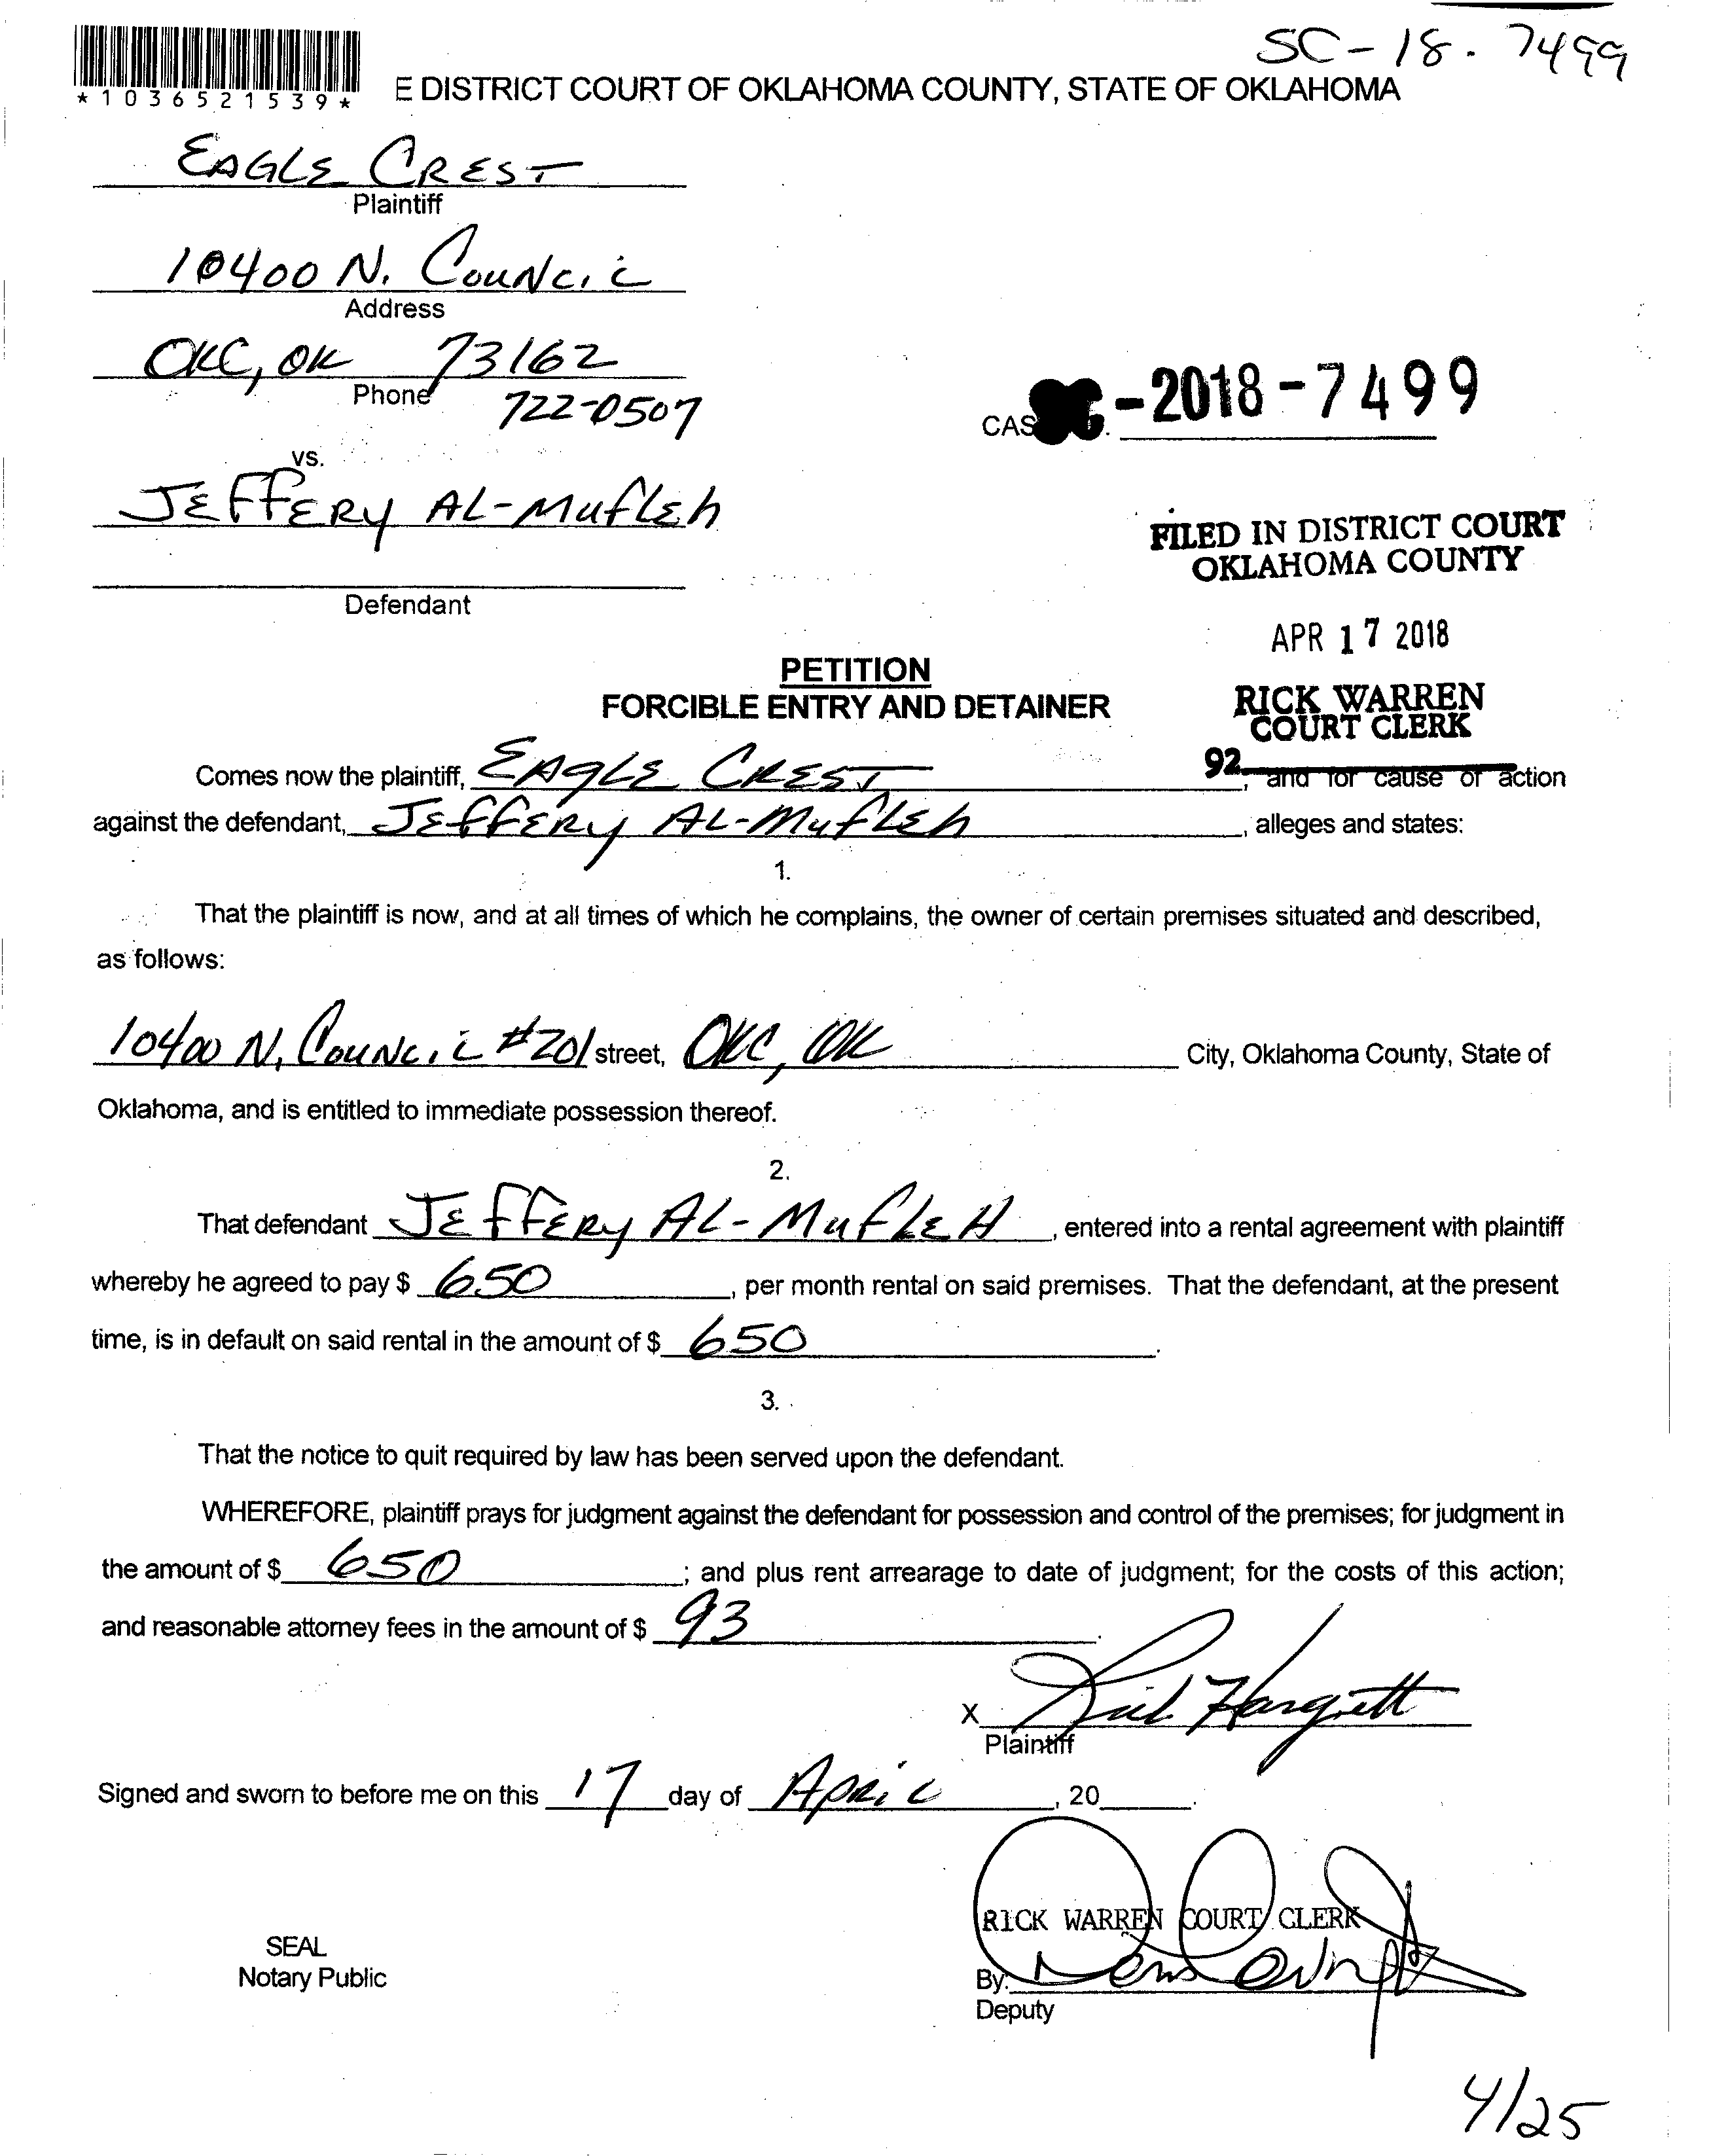 SC-18-7499
*1036521539*
E DISTRICT COURT OF OKLAHOMA COUNTY, STATE OF OKLAHOMA
EAGLE CREST
Plaintiff
10400 N. COUNCIL
Address
OKC, OK 73162
Phone 722-0507
vs.
JEFFERY AL-MUFLEH
Defendant
CAS -2018-7499
FILED IN DISTRICT COURT
OKLAHOMA COUNTY
APR 17 2018
RICK WARREN
COURT CLERK
92
PETITION
FORCIBLE ENTRY AND DETAINER
Comes now the plaintiff, EAGLE CREST, and for cause of action
against the defendant, JEFFERY AL-MUFLEH, alleges and states:
1.
That the plaintiff is now, and at all times of which he complains, the owner of certain premises situated and described,
as follows:
10400 N, COUNCIL #201 street, OKC, OK City, Oklahoma County, State of
Oklahoma, and is entitled to immediate possession thereof.
2.
That defendant JEFFERY AL-MUFLEH, entered into a rental agreement with plaintiff
whereby he agreed to pay $ 650, per month rental on said premises. That the defendant, at the present
time, is in default on said rental in the amount of $ 650.
3.
That the notice to quit required by law has been served upon the defendant.
WHEREFORE, plaintiff prays for judgment against the defendant for possession and control of the premises; for judgment in
the amount of $ 650; and plus rent arrearage to date of judgment; for the costs of this action;
and reasonable attorney fees in the amount of $ 93.
X Hargett
Plaintiff
Signed and sworn to before me on this 17 day of APRIL, 20 .
RICK WARREN COURT CLERK
SEAL
Notary Public
By:
Deputy
4/25